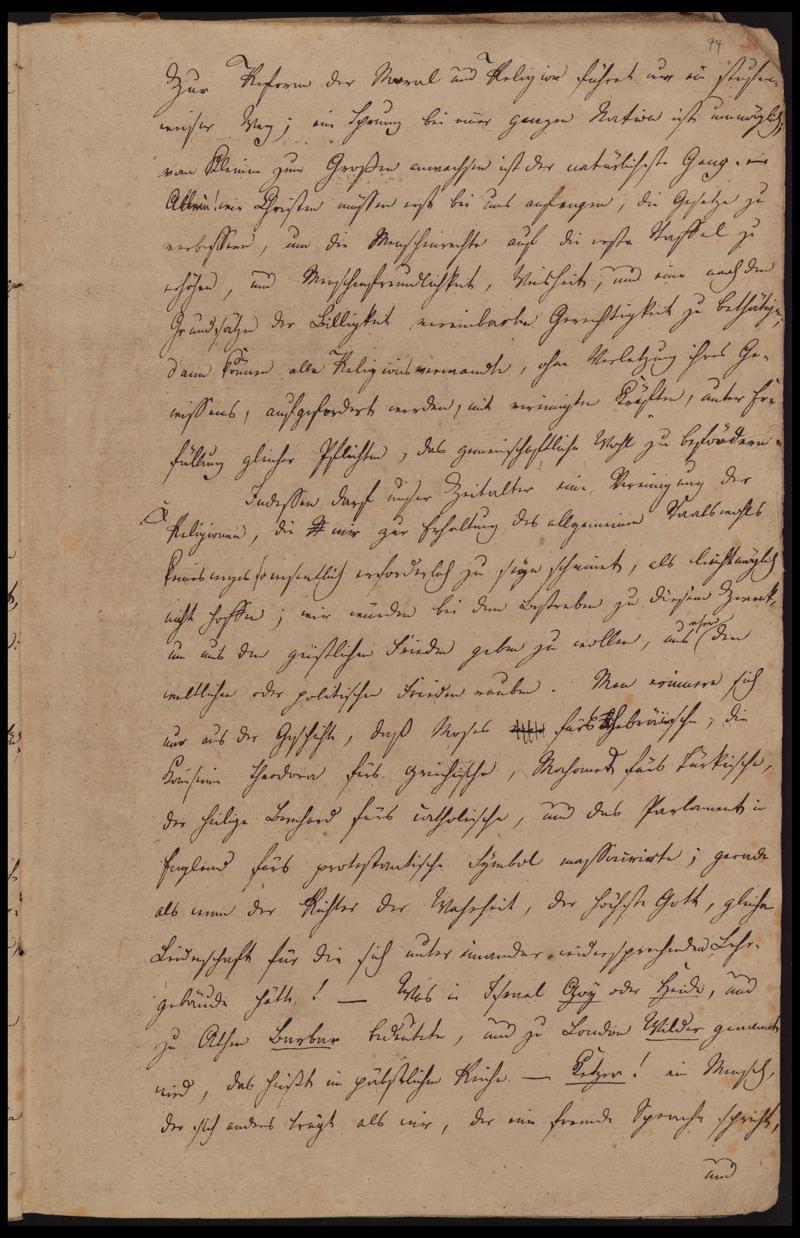 74
Zur Reform der Moral und Religion führet nur ein stufen-
weiser Weg; ein Sprung bei einer ganzen Nation ist unmöglich;
vom Kleinen zum Großen anwachsen ist der natürlichste Gang.
Allein wir Christen müssen erst bei uns anfangen, die Gesetze zu
verbessern, um die Menschenrechte auf die erste Staffel zu
erhöhen, und Menschenfreundlichkeit, Weisheit, und eine nach den
Grundsätzen der Billigkeit vereinbarte Gerechtigkeit zu bethätigen;
dann können alle Religionsverwandte, ohne Verletzung ihres Ge-
wissens, aufgefordert werden, mit vereinigten Kräften, unter Er-
füllung gleicher Pflichten, das gemeinschaftliche Wohl zu befördern.
Indessen darf unser Zeitalter eine Vereinigung der
Religionen, die mir zur Erhaltung des allgemeinen Staatswohls
keineswegs so wesentlich erforderlich zu seyn scheinet, als leicht möglich
nicht hoffen; wir würden bei dem Bestreben zu diesem Zwecke,
um uns den geistlichen Frieden geben zu wollen, uns eher den
weltlichen oder politischen Frieden rauben. Man erinnere sich
nur aus der Geschichte, daß Moses fürs Hebräische, die
Kaiserinn Theodora fürs griechische, Mahomed fürs Türkische,
der heilige Bernhard fürs catholische, und das Parlament in
England fürs protestantische Symbol massacrirte; gerade
als wenn der Richter der Wahrheit, der höchste Gott, gleiche
Leidenschaft für die sich unter einander widersprechenden Lehr-
gebäude hätte! — Was in Israel Goy oder Heide, und
zu Athen Barbar bedeutete, und zu London Wilder genannt
wird, das heißt im päbstlichen Reiche — Ketzer! ein Mensch,
der sich anders trägt als wir, der eine fremde Sprache spricht,
und